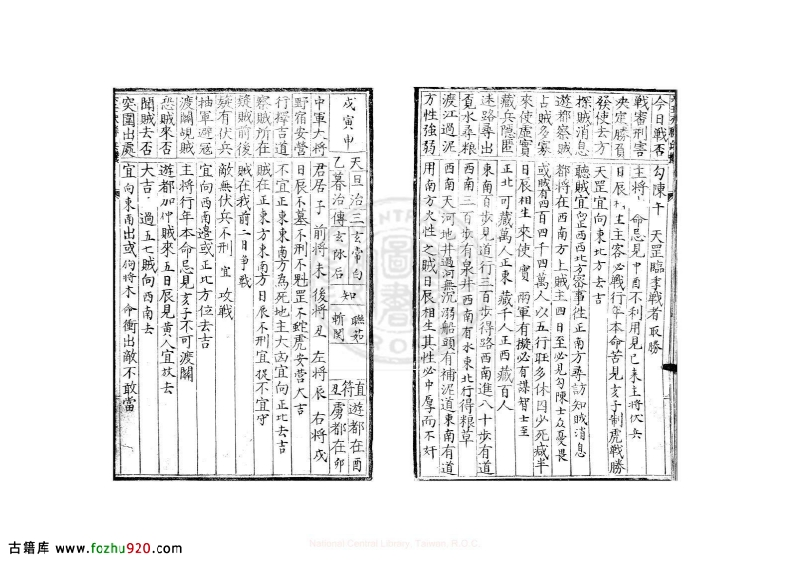 今日戰否 勾陳午 天罡臨季戰者取勝
戰審刑害 主將 命忌見申酉不利用見巳未主將伏兵
央定勝負 日辰 主客必戰行年本命若見亥子制虎戰勝
發使去方 天罡宜向東北方去吉
探賊消息 聽賊宜 西西北方密事徃正南方尋訪知賊消息
遊都察賊 都將在西南方上賊主四日至必見勾陳士众憂畏
占賊多寡 或賊有四百四千四萬人以五行旺多休囚少死減半
來使虛實 日辰相生來使實 兩軍有擬必有謀智士至
藏兵隱匿 正北可藏萬人正東藏千人正西藏百人
迷路尋出 東南百步見道行三百步得路西南進八十步有道
覓水尋粮 西南三百步有泉井西南有水東北行得粮草
渡江過泥 西南天河地井過河無沉溺船頭有補泥道東南有道
方性強弱 用南方火性之賊日辰相生其性必中厚而不奸
戊寅申 天旦治三玄常白 聮茹 直 遊都在酉
乙暮治傳玄陰后 知 斬関 符 丑 虜都在卯
中軍大將 君居子 前將未 後將丑 左將辰 右將戌
野宿安營 日辰不墓不刑不魁罡不蛇虎安營大吉
行擇吉道 不宜正東東南方為死地主大凶宜向正北去吉
察賊所在 賊在正東方東南方日辰不刑宜捉不宜守
疑賊前後 賊在我前二日爭戰
疑有伏兵 敵無伏兵不刑 宜 攻戰
抽軍避寇 宜向西南邊或正北方位去吉
渡關覘賊 主將行年本命忌見亥子不可渡關
恐賊來否 遊都加 賊來五日辰見黃人宜放去
聞賊去否 大吉 過五七賊向西南去
突圍出處 宜向東南出或向將本命衝出敵不敢當
National Central Library, Taiwan, R.O.C.
古籍库 www.fozhu920.com